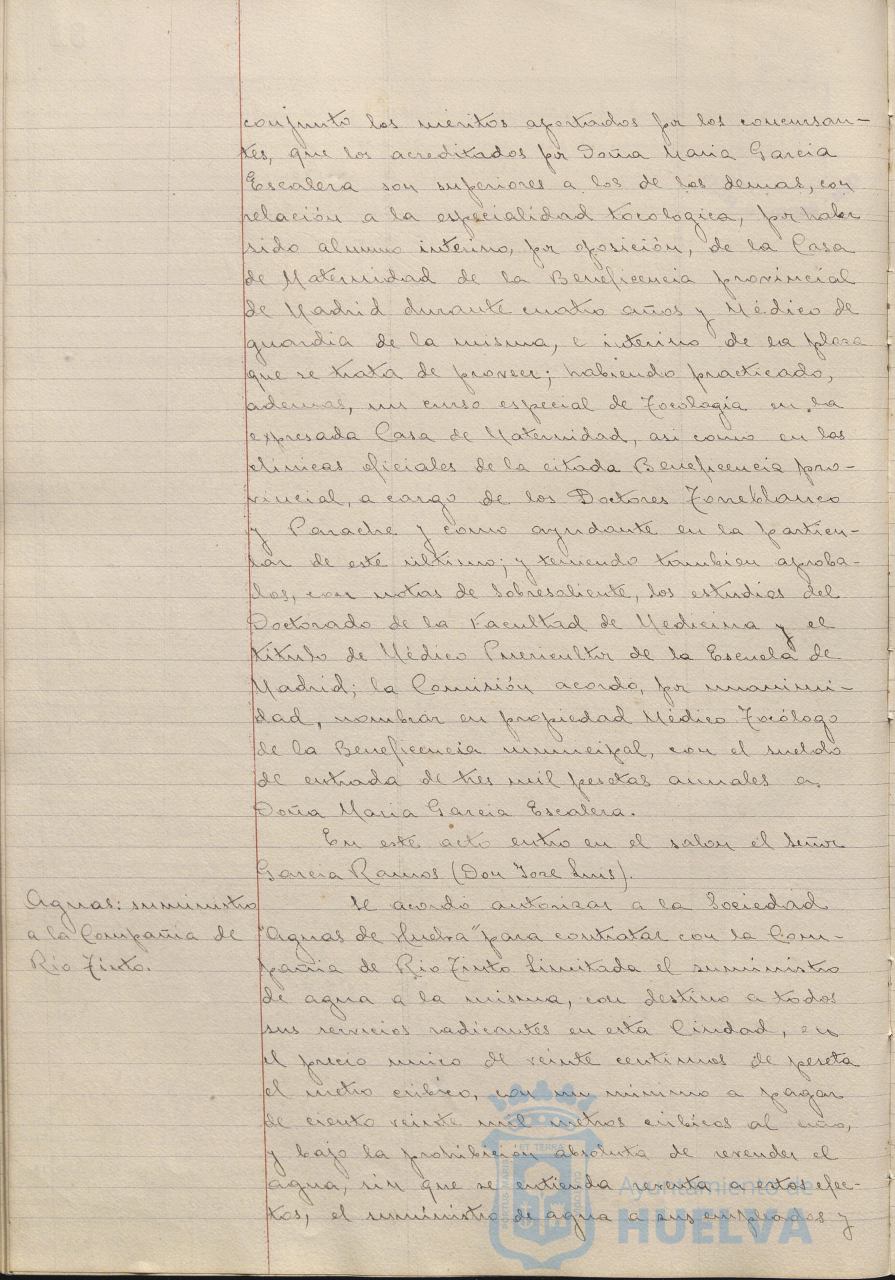 conjunto los meritos aportados por los concursan-
tes, que los acreditados por Doña Maria Garcia
Escalera son superiores a los de los demas, con
relación a la especialidad tocologica, por haber
sido alumno interino, por oposición, de la Casa
de Maternidad de la Beneficencia provincial
de Madrid durante cuatro años y Médico de
guardia de la misma, e interino de la plaza
que se trata de proveer; habiendo practicado,
ademas, un curso especial de Tocologia en la
expresada Casa de Maternidad, asi como en las
clinicas oficiales de la citada Beneficencia pro-
vincial, a cargo de los Doctores Torreblanco
y Parache y como ayudante en la particu-
lar de este ultimo; y teniendo tambien aproba-
dos, con notas de Sobresaliente, los estudios del
Doctorado de la Facultad de Medicina y el
titulo de Médico Puericultor de la Escuela de
Madrid; la Comisión acordo, por unanimi-
dad, nombrar en propiedad Médico Tocólogo
de la Beneficencia municipal, con el sueldo
de entrada de tres mil pesetas anuales a
Doña Maria Garcia Escalera.
En este acto entro en el salon el Señor
Garcia Ramos (Don José Luis).
Aguas: suministro
a la Compañia de
Rio Tinto.
Se acordó autorizar a la Sociedad
"Aguas de Huelva" para contratar con la Com-
pañia de Rio Tinto Limitada el suministro
de agua a la misma, con destino a todos
sus servicios radicantes en esta Ciudad, en
el precio unico de veinte centimos de peseta
el metro cubico, con un minimo a pagar
de ciento veinte mil metros cubicos al año,
y bajo la prohibición absoluta de revender el
agua, sin que se entienda reventa a estos efec-
tos, el suministro de agua a sus empleados y
Ayuntamiento de
HUELVA